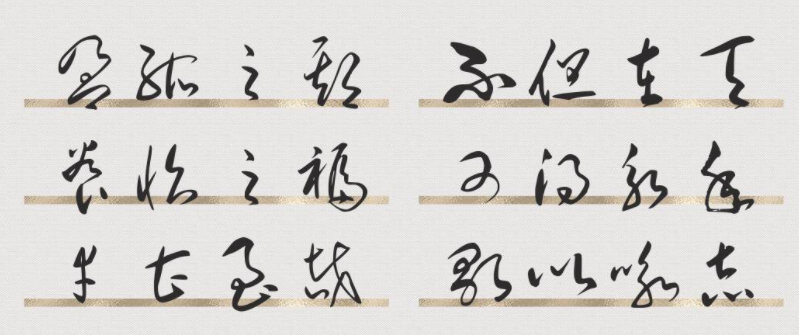 盈缩之期 不但在天
养怡之福 可得永年
幸甚至哉 歌以咏志